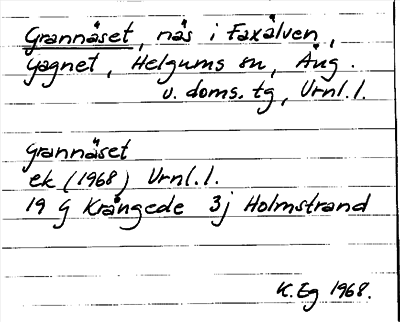 Grannäset, näs i Faxälven,
Gagnet, Helgums sn, Ång.
v. doms. tg, Vrnl. l.
Grannäset
ek (1968) Vrnl. l.
19 G Krångede 3j Holmstrand
K. Eg 1968.